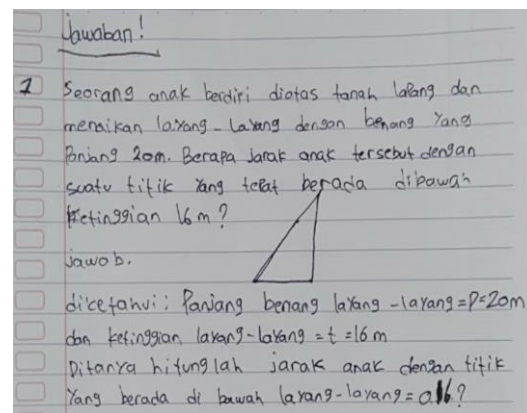 Jawaban!
1 Seorang anak berdiri diatas tanah lapang dan
menaikan layang-layang dengan benang yang
Panjang 20m. Berapa Jarak anak tersebut dengan
suatu titik yang tepat berada dibawah
Ketinggian 16 m?
Jawab.
diketahui: Panjang benang layang-layang=P=20m
dan ketinggian layang-layang = t =16m
Ditanya hitunglah jarak anak dengan titik
Yang berada di bawah layang-layang=